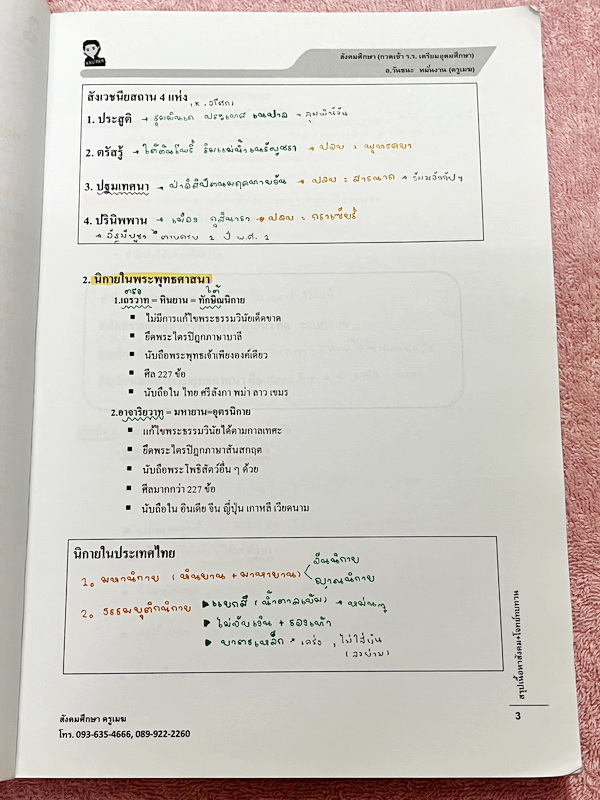 KRU MAX
สังคมศึกษา (กวดเข้า ร.ร. เตรียมอุดมศึกษา)
อ.วันชนะ หมั่นงาน (ครูเมฆ)
สังเวชนียสถาน 4 แห่ง
1. ประสูติ → ประเทศ เนปาล → ลุมพินีวัน
2. ตรัสรู้ → ใต้ต้นโพธิ์ ริมแม่น้ำเนรัญชรา → ปจบ = พุทธคยา
3. ปฐมเทศนา → ป่าอิสิปตนมฤคทายวัน → ปจบ = สารนาถ →
4. ปรินิพพาน → เมือง กุสินารา → ปจบ =
2. นิกายในพระพุทธศาสนา
ใต้
1.เถรวาท = หินยาน = ทักษิณนิกาย
▪ ไม่มีการแก้ไขพระธรรมวินัยเด็ดขาด
▪ ยึดพระไตรปิฎกภาษาบาลี
▪ นับถือพระพุทธเจ้าเพียงองค์เดียว
▪ ศีล 227 ข้อ
▪ นับถือใน ไทย ศรีลังกา พม่า ลาว เขมร
2.อาจาริยวาท = มหายาน=อุตรนิกาย
▪ แก้ไขพระธรรมวินัยได้ตามกาลเทศะ
▪ ยึดพระไตรปิฎกภาษาสันสกฤต
▪ นับถือพระโพธิสัตว์อื่น ๆ ด้วย
▪ ศีลมากกว่า 227 ข้อ
▪ นับถือใน อินเดีย จีน ญี่ปุ่น เกาหลี เวียดนาม
นิกายในประเทศไทย
จีนนิกาย
1. มหานิกาย (หินยาน + มาหายาน)
ญาณนิกาย
2. ธรรมยุติกนิกาย ▶ แยกสี (น้ำตาลเข้ม)
▶ ไม่จับเงิน + รองเท้า
▶ บาตรเหล็ก → เคร่ง , ไม่ใส่เงิน
สรุปเนื้อหาสังคม+โจทย์ทบทวน
3
สังคมศึกษา ครูเมฆ
โทร. 093-635-4666, 089-922-2260